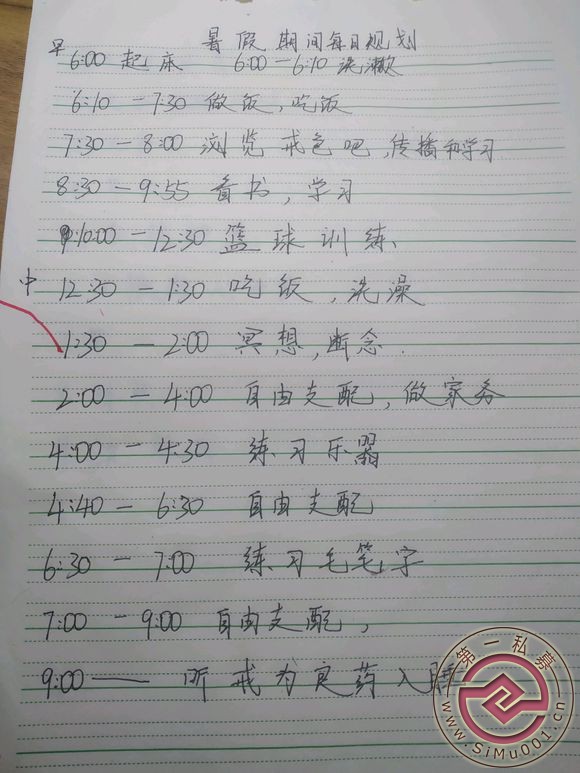 暑假期间每日规划
早 6:00 起床 6:00-6:10 洗漱
6:10-7:30 做饭,吃饭
7:30-8:00 浏览戒色吧,传播和学习
8:30-9:55 看书,学习
10:00-12:30 篮球训练、
中 12:30-1:30 吃饭,洗澡
1:30-2:00 冥想,断念.
2:00-4:00 自由支配,做家务
4:00-4:30 练习乐器
4:40-6:30 自由支配
6:30-7:00 练习毛笔字
7:00-9:00 自由支配,
9:00—— 听戒为良药入睡
第一私募
www.SiMu001.cn